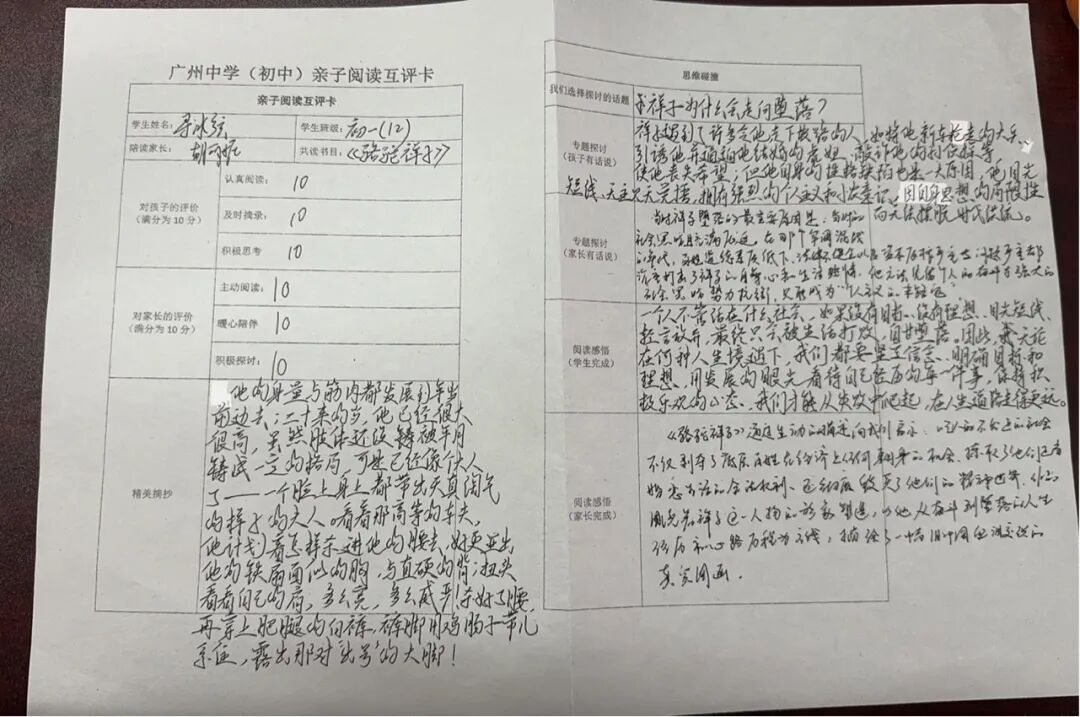 广州中学（初中）亲子阅读互评卡
亲子阅读互评卡
学生姓名：
学生班级：初一（12）
陪读家长：
共读书目：《骆驼祥子》
对孩子的评价
（满分为 10 分）
认真阅读： 10
及时摘录： 10
积极思考 10
对家长的评价
（满分为 10 分）
主动阅读： 10
暖心陪伴 10
积极探讨： 10
精美摘抄
他的身量与筋肉都发展到年岁
前边去；二十来的岁，他已经很大
很高，虽然肢体还没铸被年月
铸成一定的格局，可是已经像个成人
了——一个脸上身上都带出天真淘气
的样子的大人。看着那高等的车夫，
他计划着怎样杀进他的腰去，好更显出
他的铁扇面似的胸，与直硬的背；扭头
看看自己的肩，多么宽，多么威严！杀好了腰，
再穿上肥腿的白裤，裤脚用鸡肠子带儿
系住，露出那对"出号"的大脚！
思维碰撞
我们选择探讨的话题
祥子为什么会走向堕落？
专题探讨
（孩子有话说）
祥子遇到了许多令他走下坡路的人，如将他新车抢走的大兵、
引诱他并逼迫他结婚的虎妞、敲诈他的孙侦探等，
使他丧失希望；但他自身的性格缺陷也是一大原因，他目光
短浅、
拥有强烈的个人主义
因自身思想的局限性
而无法摆脱时代传统。
专题探讨
（家长有话说）
当时祥子堕落的最主要原因是，当时的
社会黑暗且充满压迫，在那个军阀混战
的年代，
道德素质低下、法律不健全以及
祥子的自尊心和生活热情，他无法凭借个人的奋斗与强大的
黑暗势力抗衡，只能成为个人主义的末路鬼
阅读感悟
（学生完成）
一个人不管活在什么社会，如果没有目标、没有理想、目光短浅、
轻言放弃，最终只会被生活打败，自甘堕落。因此，我无论
在何种人生境遇下，我们都要坚定信念、明确目标和
理想，用发展的眼光看待自己经历的每一件事，保持积
极乐观的心态，我们才能从失败中爬起，在人生道路走得更远。
阅读感悟
（家长完成）
《骆驼祥子》通过生动的描述向我们展示，
的社会
不仅剥夺了底层百姓在经济上任何翻身的机会、
了他们
生活的合法权利、还彻底毁灭了他们的精神世界。作品
祥子这一人物的形象塑造，以他从奋斗到堕落的人生
经历和心路历程为主线，描绘了一幅旧中国
的
真实图画。